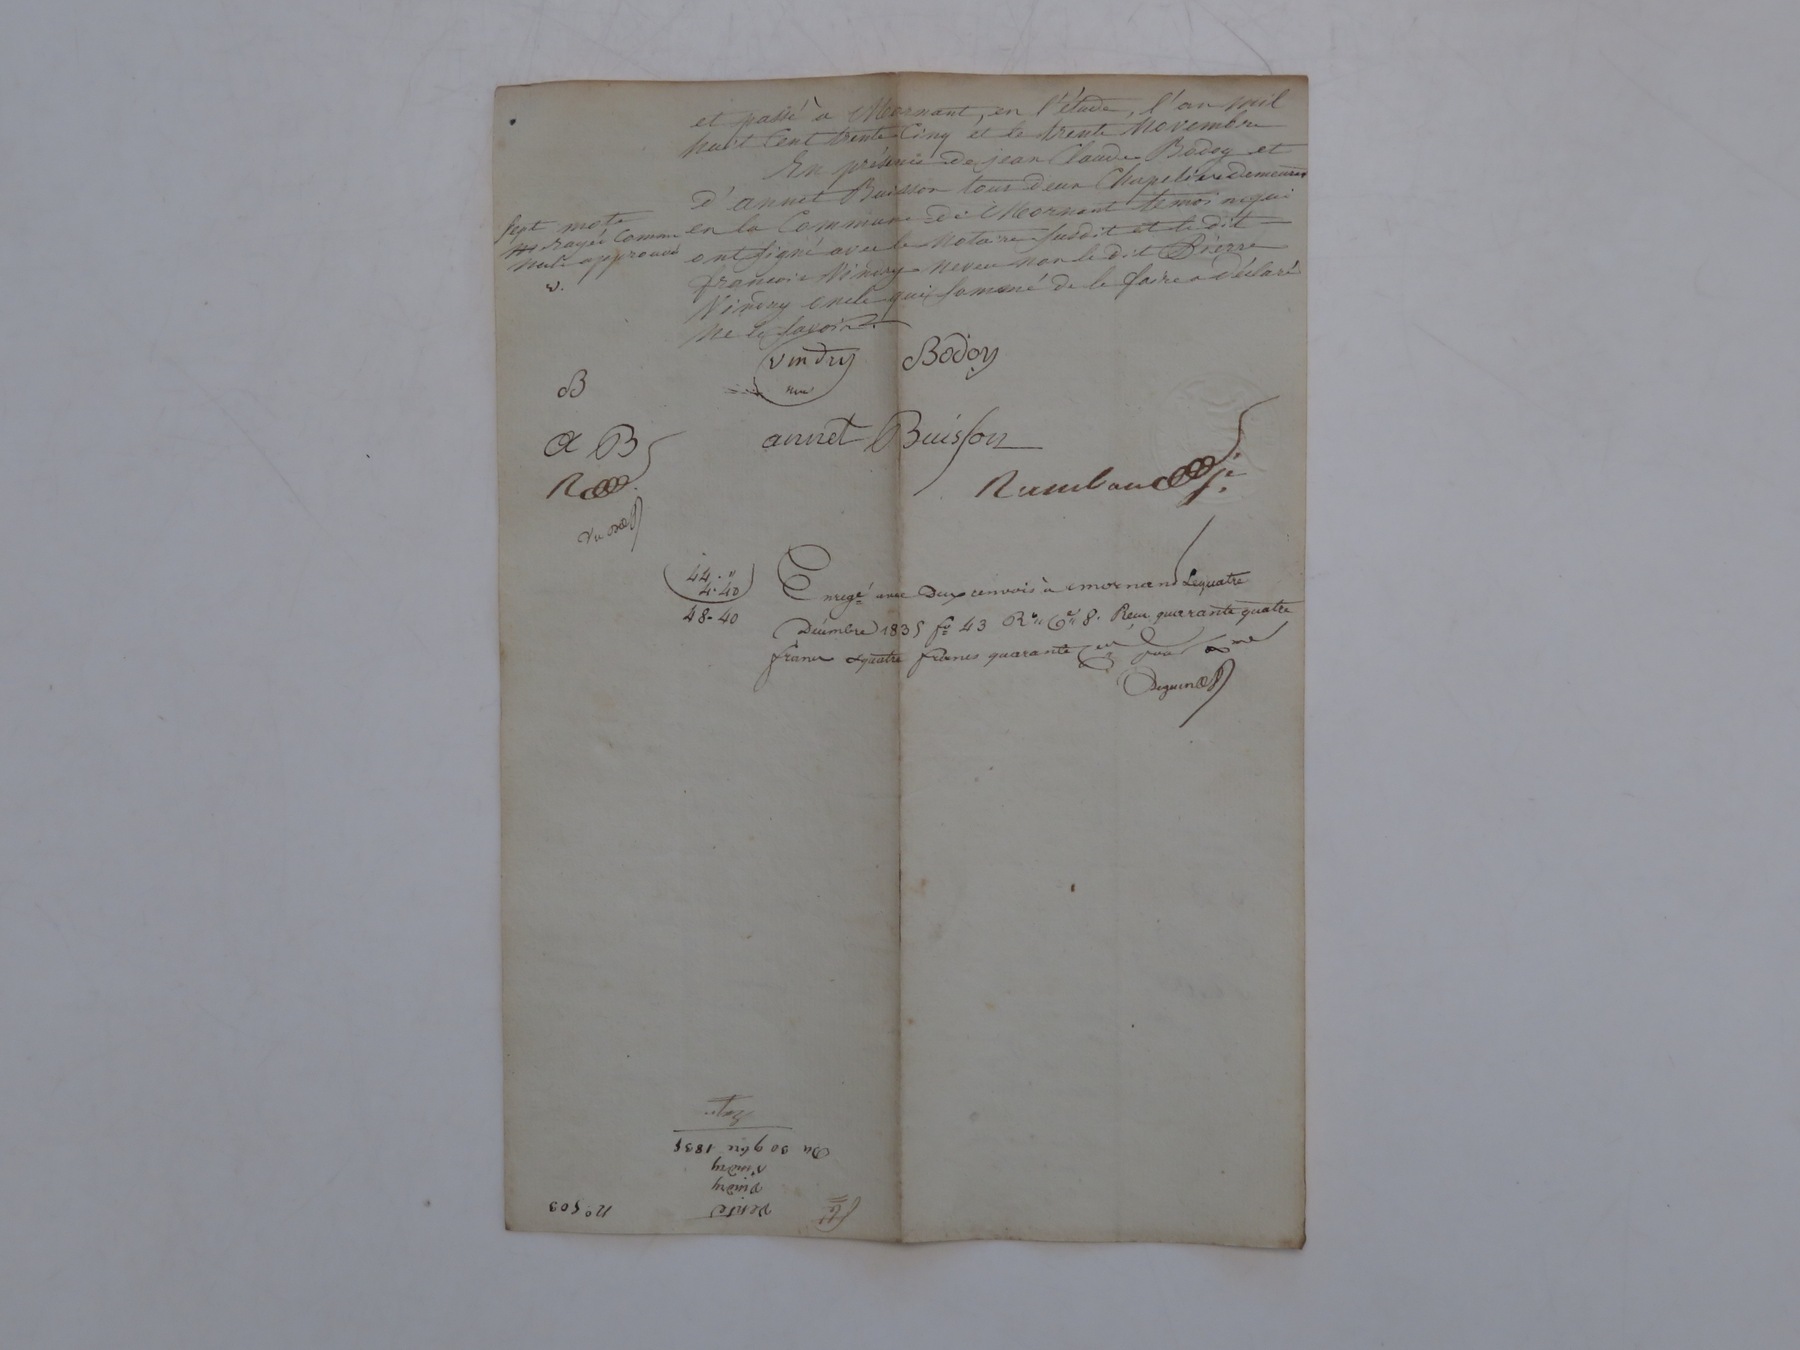 et passé à Mornant, en l'étude, l'an mil
huit Cent trente Cinq et le trente Novembre
En présence de jean Claude Bodoy et
d'annet Buisson tous deux Chapeliers demeurant
en la Commune de Mornant témoins qui
ont signé avec le Notaire susdit et le dit
françois Vindry neveu non le dit Pierre
Vindry oncle qui sommé de le faire a déclaré
ne le savoir.
sept mots
rayés Comme
nuls approuvé
v.
Vindry
Bodoy
B
A B
annet Buisson
44 . "
4. 40
48. 40
Enregé avec Deux renvois à mornant Le quatre
Décembre 1835 fo 43 Ro Ce 8. Reçu quarante quatre
francs & quatre francs quarante
Du 30 9bre 1835
Vindry
Vindry
Vente
No 503